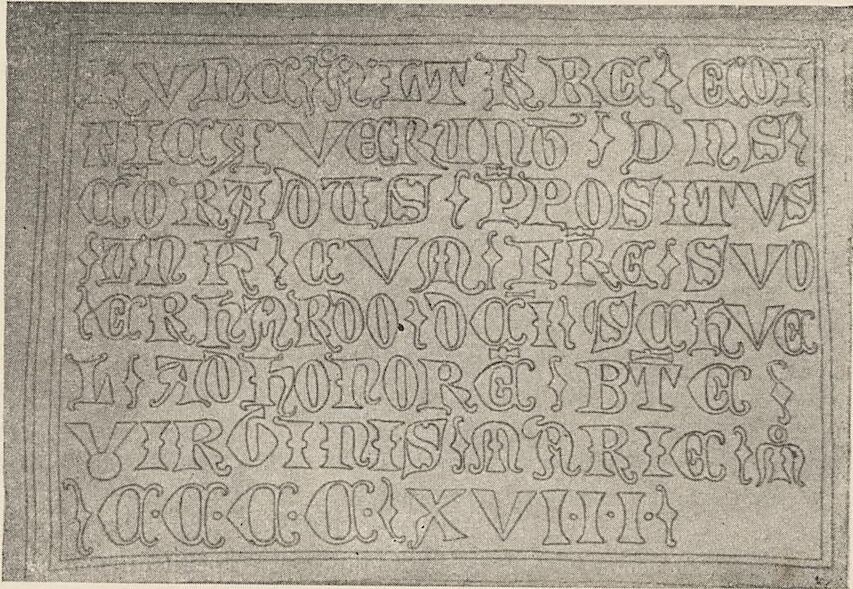 HVNC : ALTARE : EDI
FICAVERUNT : DNS
CORADUS : PPOSITVS
: CVM : FRE : SVO
: ERHARDO : DCI : SCHVE
L : AD HONORE : BTE :
VIRGINIS : MARIE : M
: C·C·C·C· : XVI·I·I· :